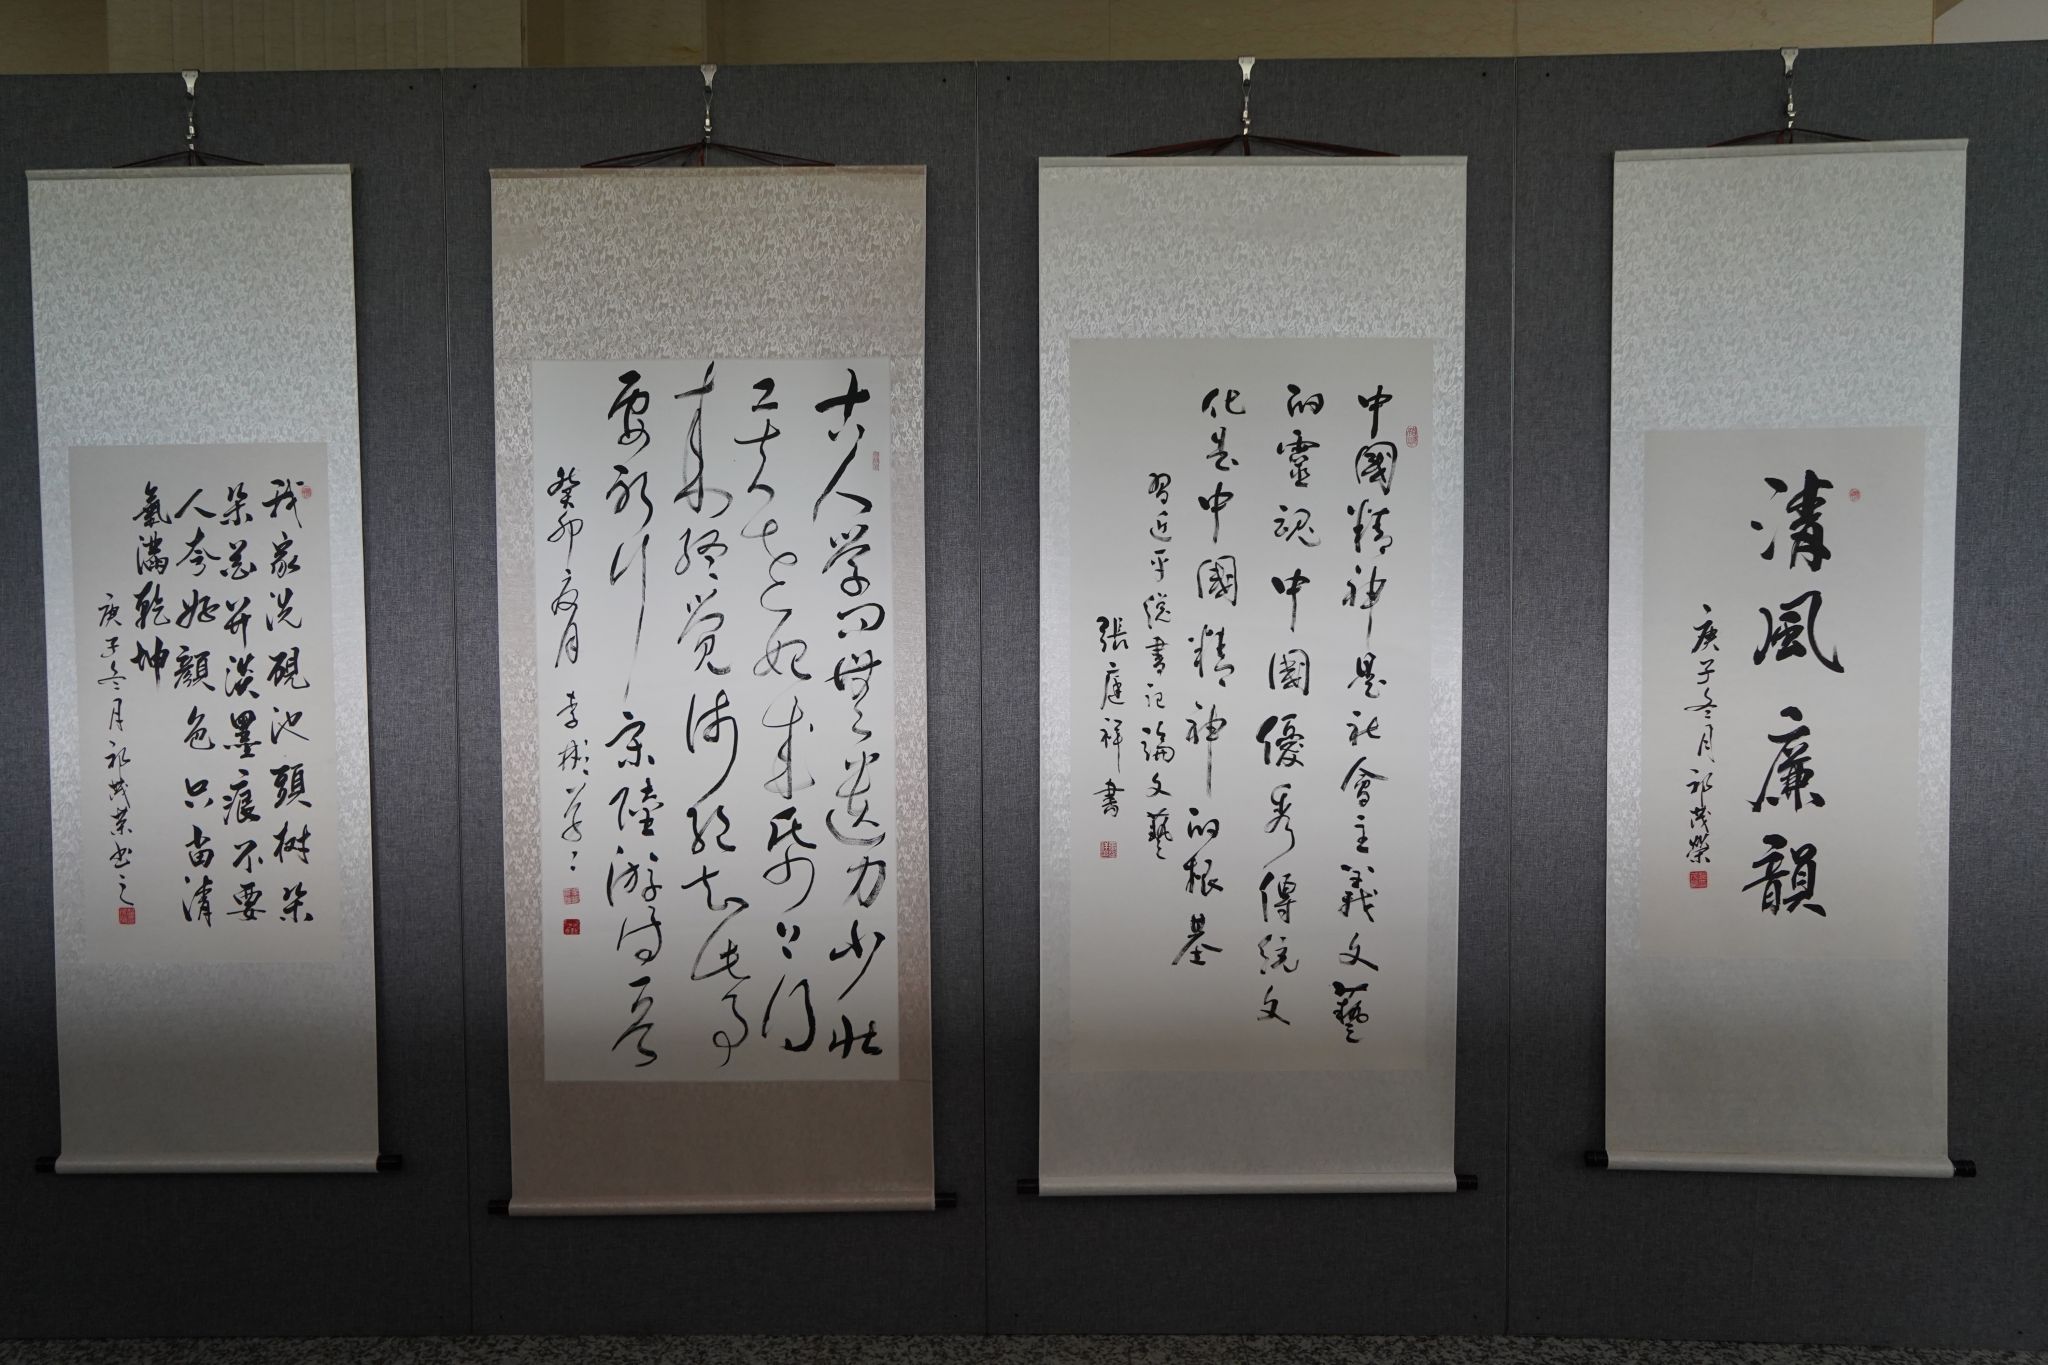 清風廉韻
庚子冬月祁茂榮
中國精神是社會主義文藝
的靈魂中國優秀傳統文
化是中國精神的根基
習近平總書記論文藝
張庭祥書
古人学问無遺力少壯
工夫老始成紙上得
来終覺淺絶知此事
要躬行宋陸游詩一首
癸卯夏月李彬
我家洗硯池頭树朵
朵花開淡墨痕不要
人夸好顏色只留清
氣滿乾坤
庚子冬月祁茂荣书之